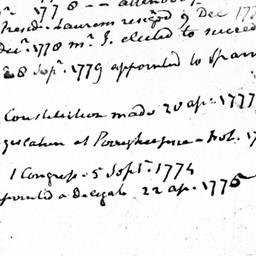 1778 -- attend
Presid. Laurens resigd 9 Dec 177
Dec. 1778 Mr. J. elected to succeed
28 Sepr. 1779 appointed to Spain
Constitution made 20 ap: 1777
Legislature at Poughkeepsie - Feb. 17
1 Congress - 5 Sept. 1774
appointed a delegate 22 ap. 1775